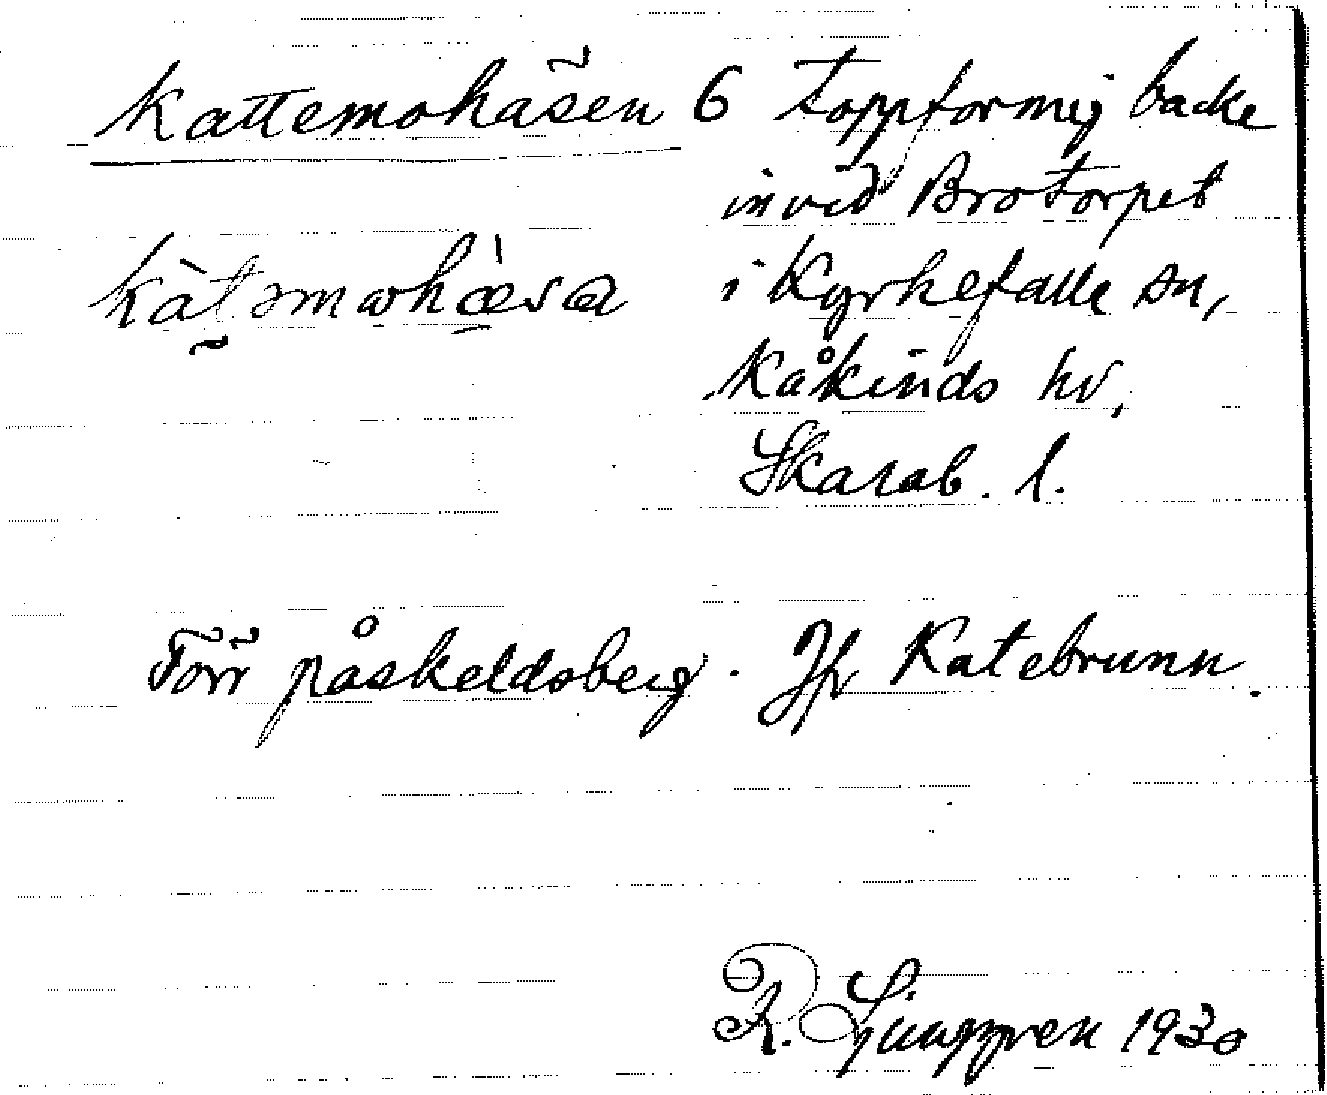 Kattemohåsen 6 toppformig backe
invid Brotorpet
i Kyrkefalla sn,
Kåkinds hd,
Skarab. l.
Förr påskeldsberg. Jfr Katebrunn.
R. Ljunggren 1930